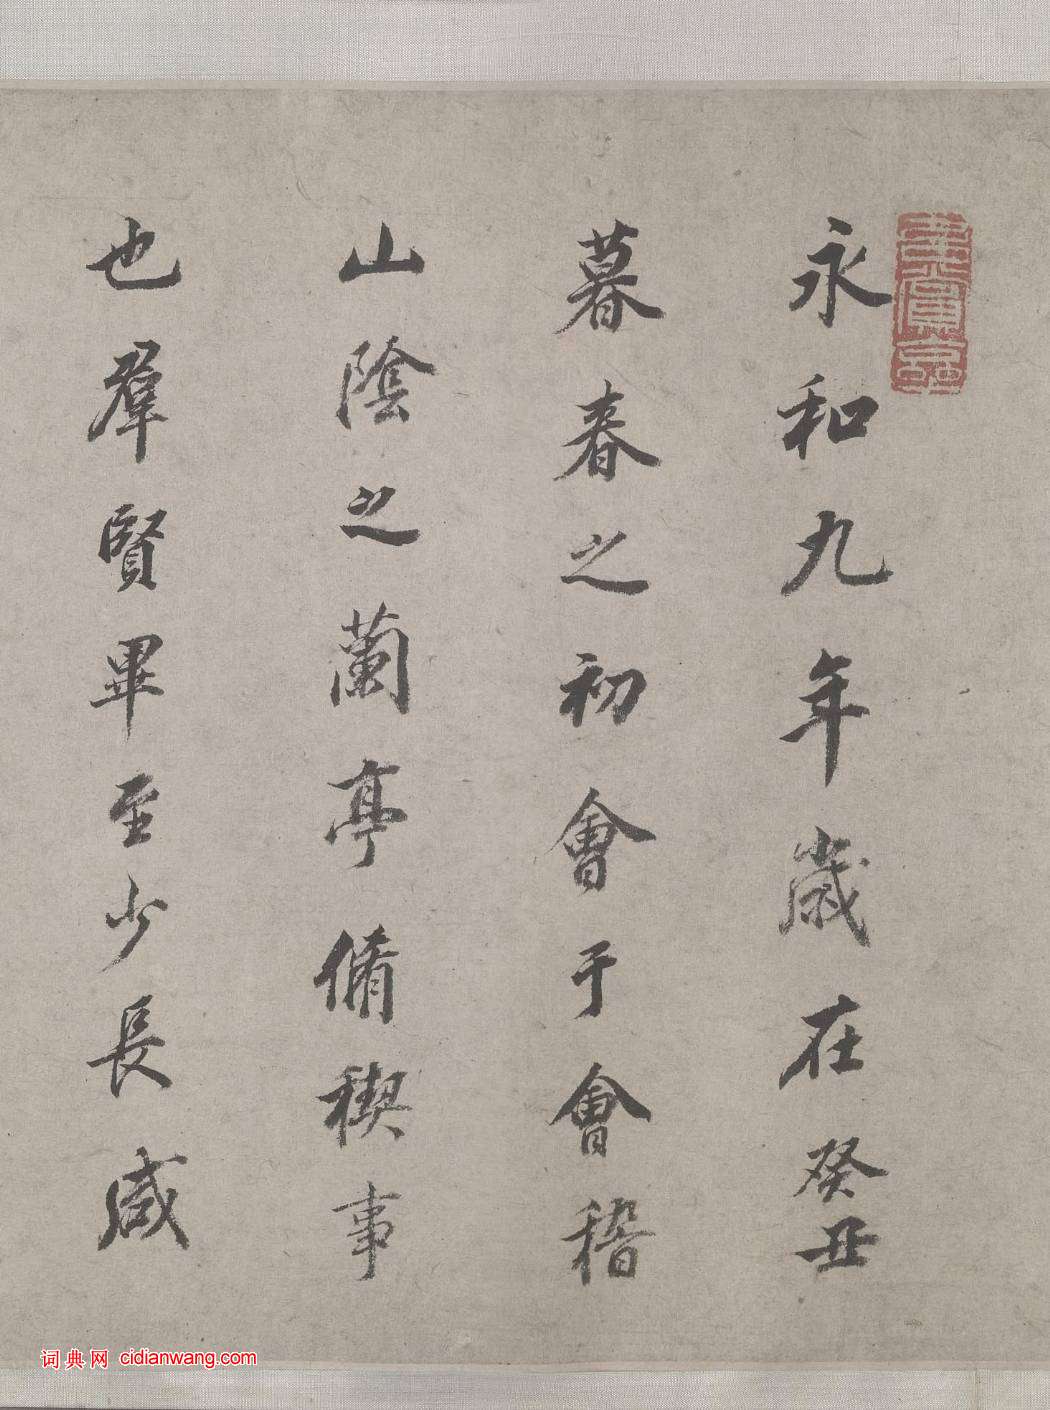 永和九年歲在癸丑
暮春之初會于會稽
山陰之蘭亭脩稧事
也羣賢畢至少長咸
词典网 cidianwang.com